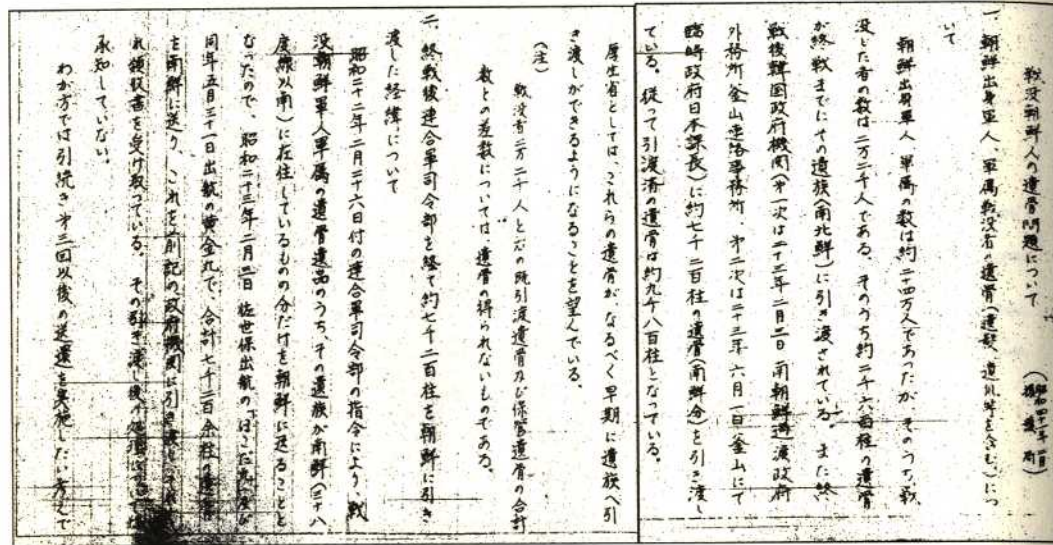 戦没朝鮮人の遺骨問題について
(昭和四十一年一月
援護局)
一、朝鮮出身軍人、軍属戦没者の遺骨(遺髪、遺爪等を含む。)につ
いて
朝鮮出身軍人、軍属の数は約二十四万人であったが、そのうち、戦
没した者の数は二万二千人である。そのうち約二千六百柱の遺骨
が終戦までにその遺族(南北鮮)に引き渡されている。また終
戦後韓国政府機関(第一次は二十三年二月二日南朝鮮過渡政府
外務所釜山連絡事務所、第二次は二十三年六月一日釜山にて
臨時政府日本課長)に約七千二百柱の遺骨(南鮮分)を引き渡し
ている。従って引渡済の遺骨は約九千八百柱となっている。
厚生省としては、これらの遺骨が、なるべく早期に遺族へ引
き渡しができるようになることを望んでいる。
(注)
戦没者二万二千人と右の既引渡遺骨及び保管遺骨の合計
数との差数については遺骨の得られないものである。
二、終戦後連合軍司令部を経て約七千二百柱を朝鮮に引き
渡した経緯について
昭和二十二年二月二十六日付の連合軍司令部の指令により、戦
没朝鮮軍人軍属の遺骨遺品のうち、その遺族が南鮮(三十八
度線以南)に在住しているものの分だけを朝鮮に送ることと
なったので、昭和二十三年二月二日佐世保出航の
同年五月三十一日出航の黄金丸で、合計七千二百余柱の遺骨
を南鮮に送り、これを前記の政府機関に引き渡し、それ
ぞれ領収書を受け取っている。その引き渡し後の
承知していない。
わが方では引続き第三回以後の送還を実施したい考えで